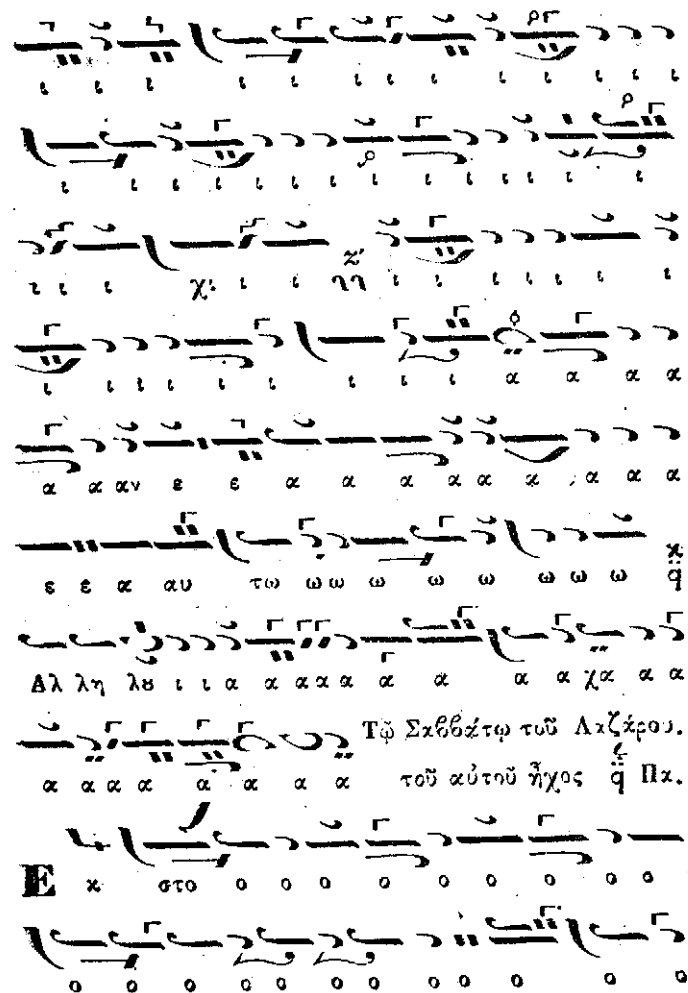 ι ι ι ι ι ι ι ι ι ι ι ι ι
ι ι ι ι ι ι ι ι ι ι ι ι ι ι
ι ι ι χι ι ι ζ' γγ ι ι ι ι ι ι ι
ι ι ι ι ι ι ι ι ι α α α α
α α αν ε ε α α α α α α α α α
ε ε α αυ τω ω ω ω ω ω ω ω ω χ q̈
Αλ λη λȣ ι ι α α α α α α α α α χα α α
α α α α α α α α Τῷ Σαββάτῳ τοῦ Λαζάρου.
τοῦ αὐτοῦ ἦχος q̈ Πα.
Ε κ στο ο ο ο ο ο ο ο ο ο
ο ο ο ο ο ο ο ο ο ο ο ο